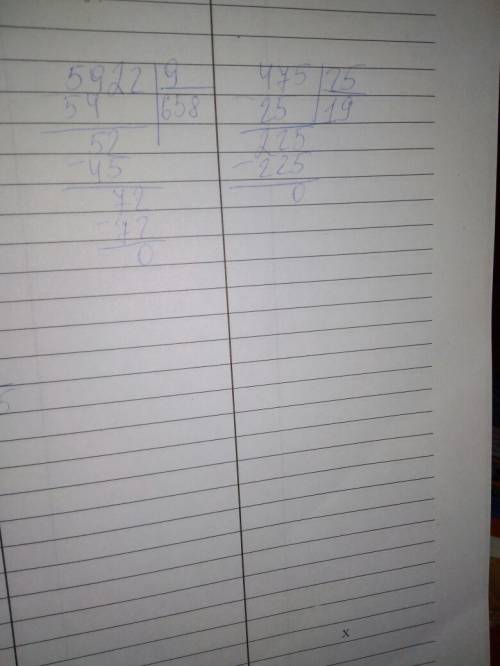 5922 9
54 658
52
-45
72
-72
0
475 25
-25 19
225
-225
0
x